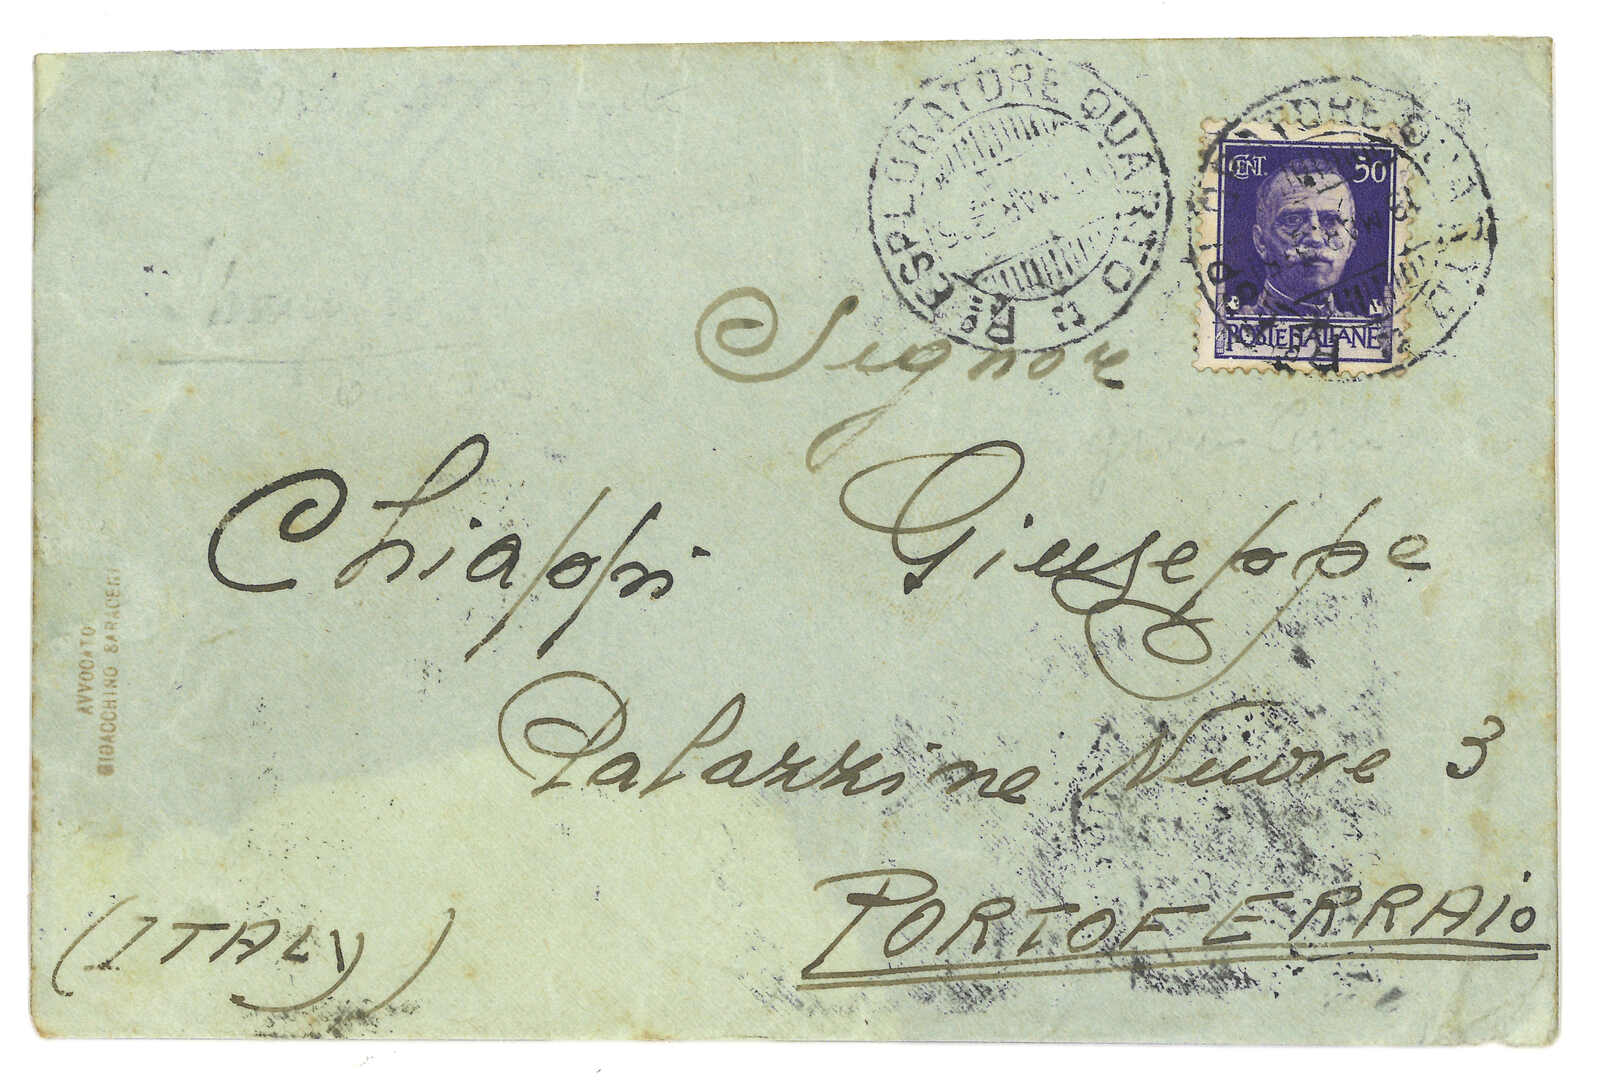 Ro ESPLORATORE QUARTO
MAR
CENT. 50
POSTE ITALIANE
Signore
Chiappi Giuseppe
Palazzine Nuove 3
PORTOFERRAIO
(ITALY)
AVVOCATO
GIOACCHINO SARACERI